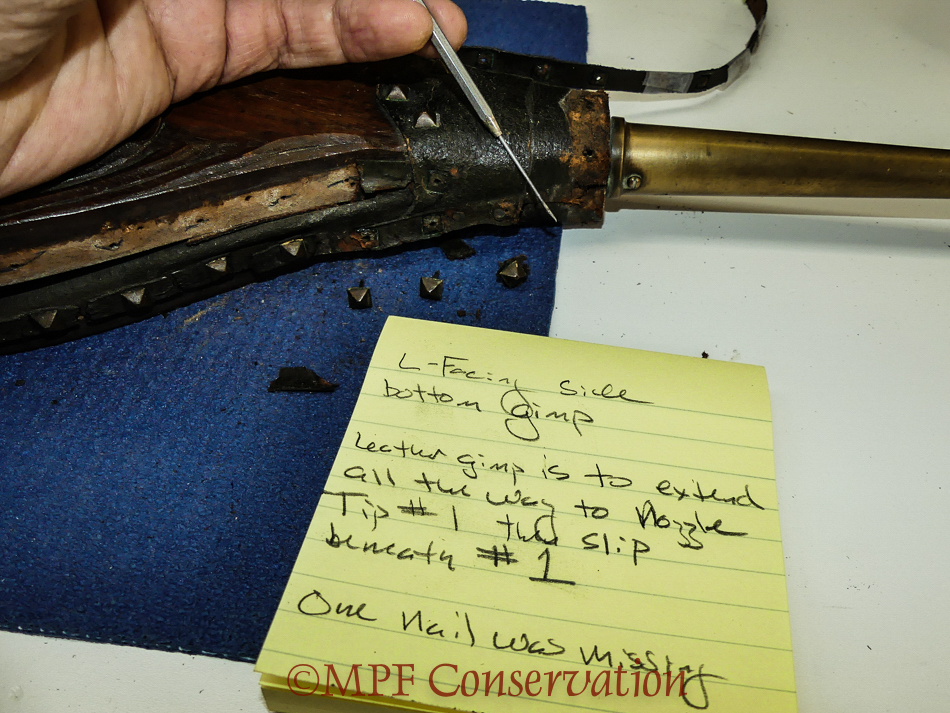 L-Facing side
bottom gimp
Leather gimp is to extend
all the way to Nozzle
Tip #1 then slip
beneath #1
One Nail was missing
©MPF Conservation